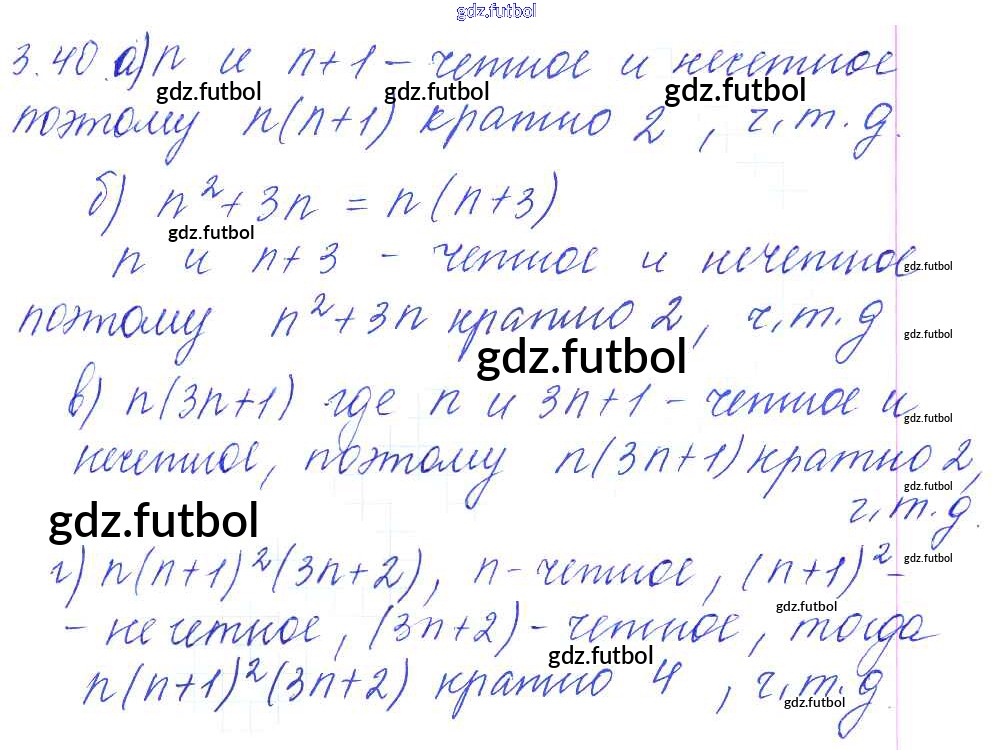 gdz.futbol
3.40 а) n и n+1 - четное и нечетное
gdz.futbol gdz.futbol gdz.futbol
поэтому n(n+1) кратно 2, ч.т.д.
б) n²+3n = n(n+3)
gdz.futbol
n и n+3 - четное и нечетное
gdz.futbol
поэтому n²+3n кратно 2, ч.т.д
gdz.futbol
gdz.futbol
в) n(3n+1) где n и 3n+1 - четное и
gdz.futbol
нечетное, поэтому n(3n+1) кратно 2,
gdz.futbol
ч.т.д.
gdz.futbol
г) n(n+1)²(3n+2), n - четное, (n+1)² -
gdz.futbol
gdz.futbol
- нечетное, (3n+2) - четное, тогда
gdz.futbol
n(n+1)²(3n+2) кратно 4, ч.т.д.
gdz.futbol